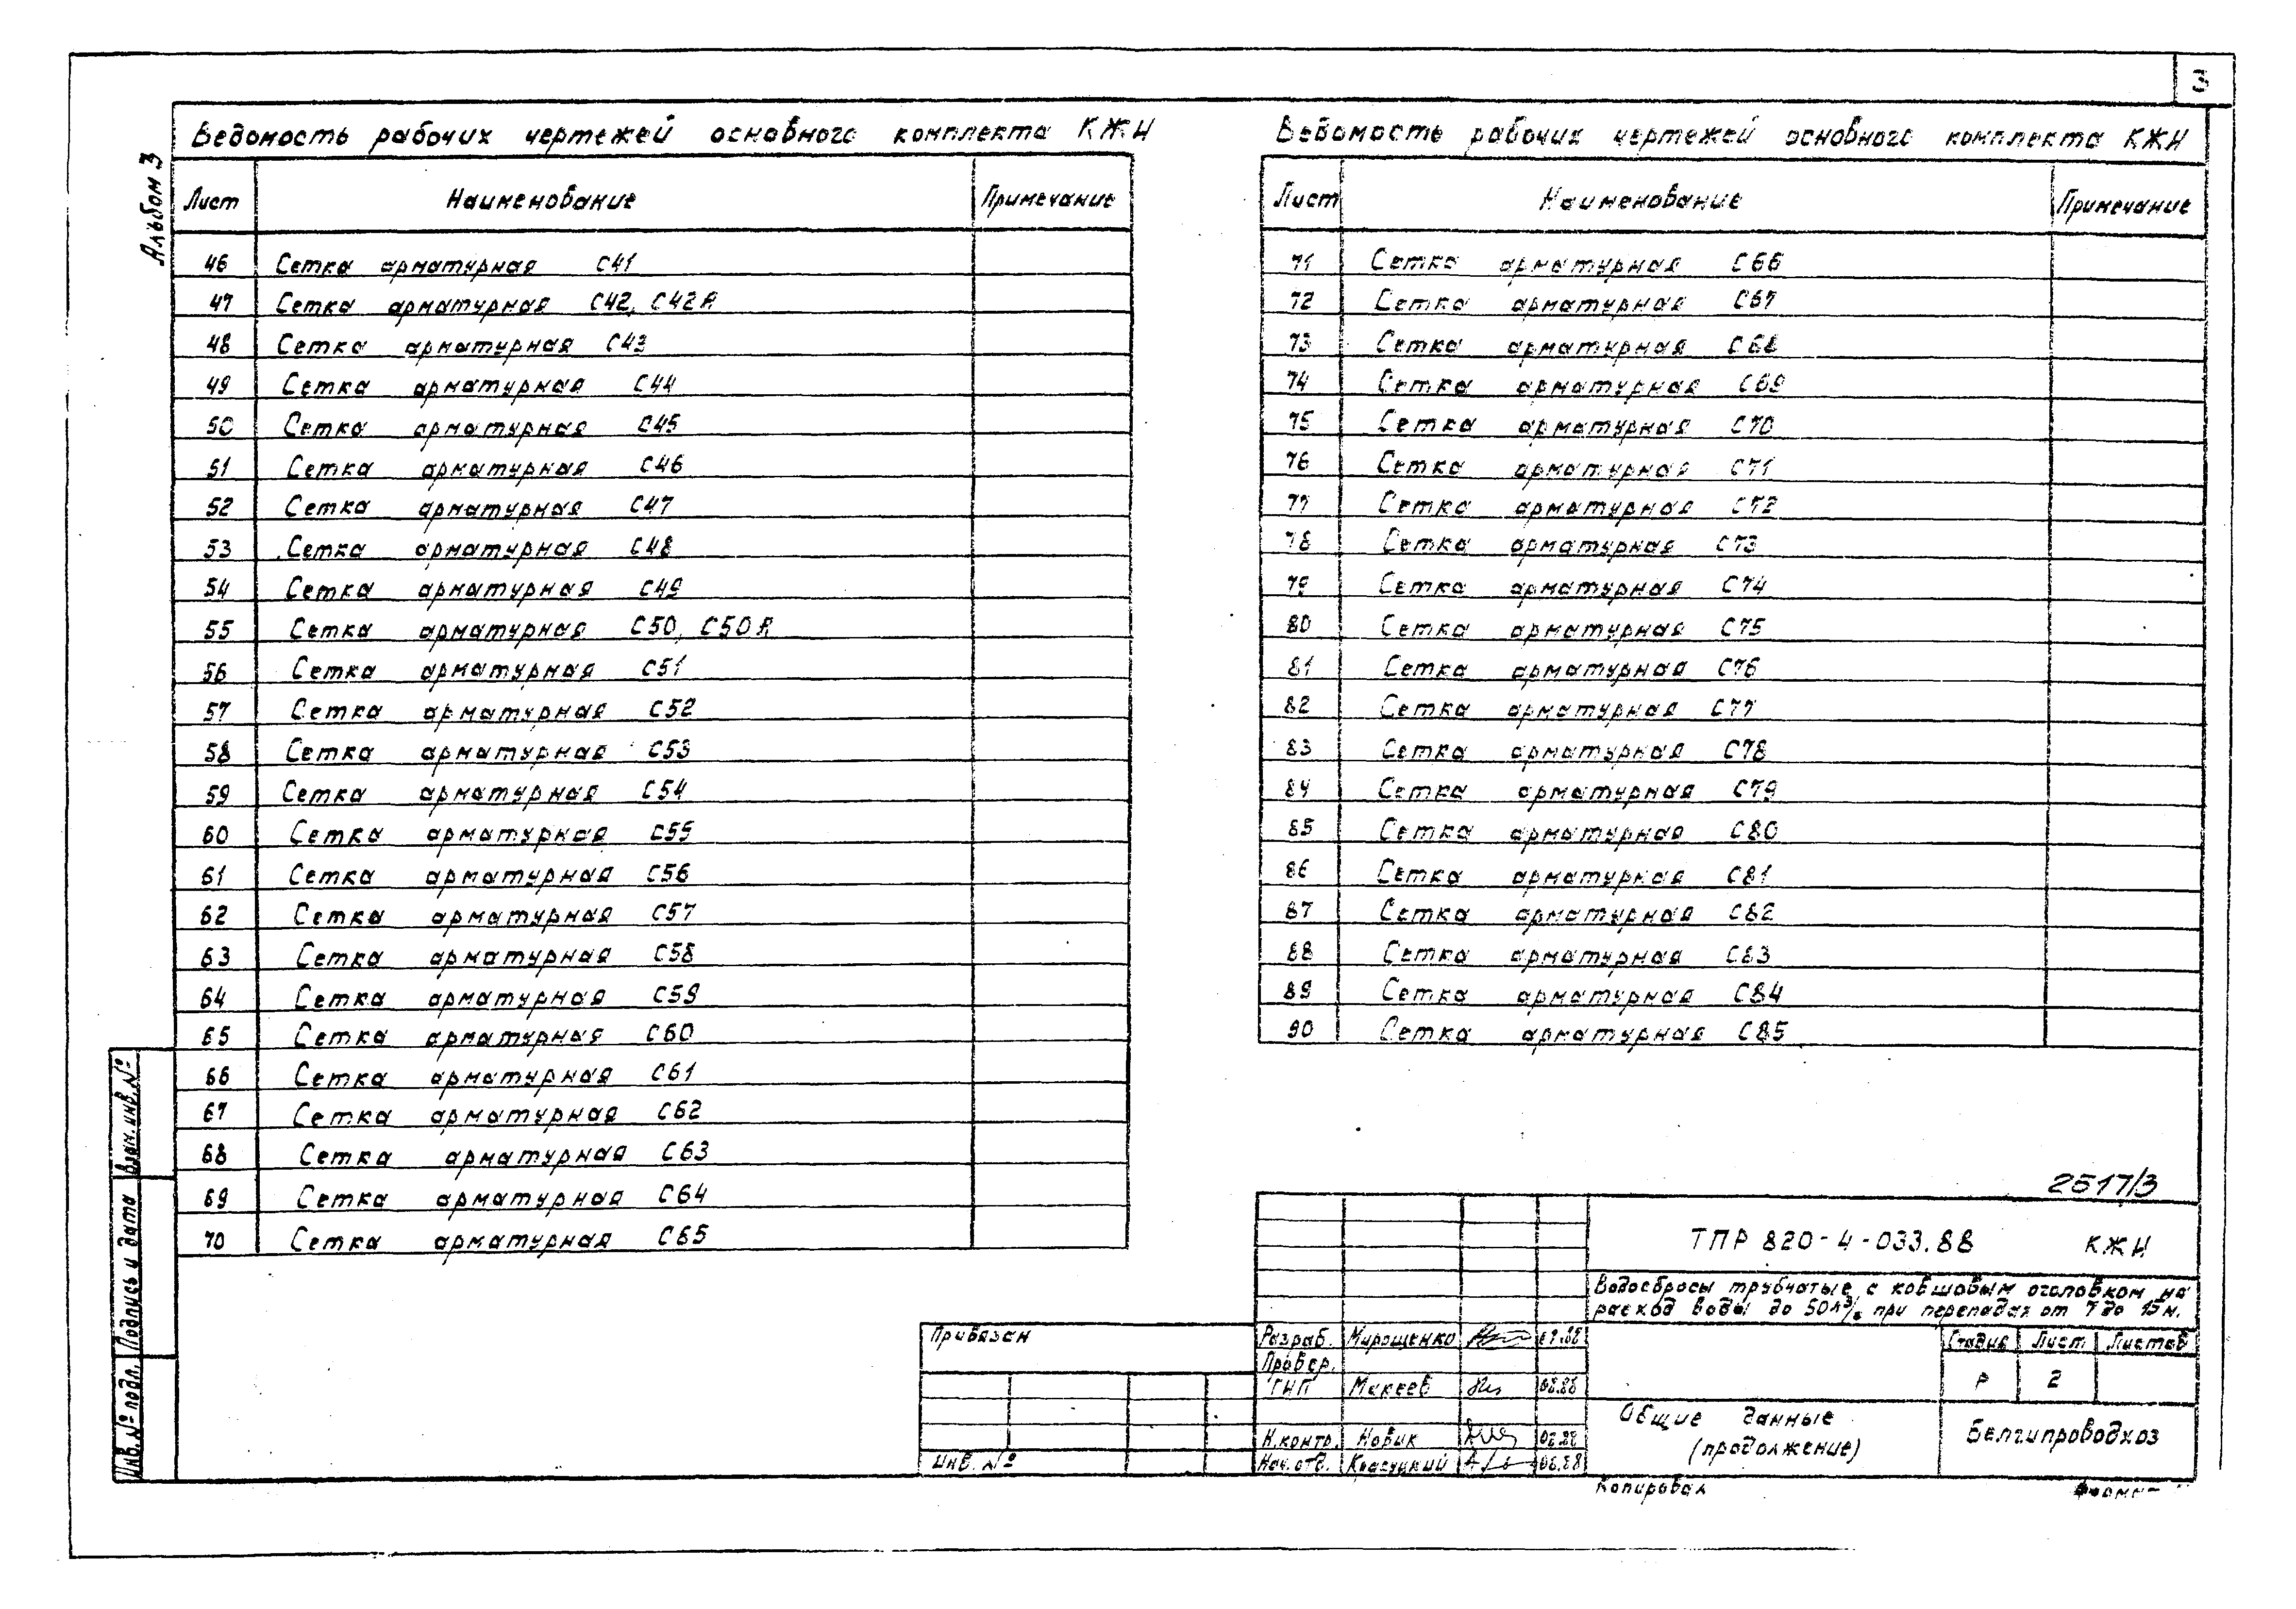 3
Альбом 3
Ведомость рабочих чертежей основного комплекта КЖИ
Лист Наименование Примечание
46 Сетка арматурная С41
47 Сетка арматурная С42, С42Я
48 Сетка арматурная С43
49 Сетка арматурная С44
50 Сетка арматурная С45
51 Сетка арматурная С46
52 Сетка арматурная С47
53 Сетка арматурная С48
54 Сетка арматурная С49
55 Сетка арматурная С50, С50Я
56 Сетка арматурная С51
57 Сетка арматурная С52
58 Сетка арматурная С53
59 Сетка арматурная С54
60 Сетка арматурная С55
61 Сетка арматурная С56
62 Сетка арматурная С57
63 Сетка арматурная С58
64 Сетка арматурная С59
65 Сетка арматурная С60
66 Сетка арматурная С61
67 Сетка арматурная С62
68 Сетка арматурная С63
69 Сетка арматурная С64
70 Сетка арматурная С65
Ведомость рабочих чертежей основного комплекта КЖИ
Лист Наименование Примечание
71 Сетка арматурная С66
72 Сетка арматурная С67
73 Сетка арматурная С68
74 Сетка арматурная С69
75 Сетка арматурная С70
76 Сетка арматурная С71
77 Сетка арматурная С72
78 Сетка арматурная С73
79 Сетка арматурная С74
80 Сетка арматурная С75
81 Сетка арматурная С76
82 Сетка арматурная С77
83 Сетка арматурная С78
84 Сетка арматурная С79
85 Сетка арматурная С80
86 Сетка арматурная С81
87 Сетка арматурная С82
88 Сетка арматурная С83
89 Сетка арматурная С84
90 Сетка арматурная С85
2517/3
ТПР 820-4-033.88 КЖИ
Водосбросы трубчатые с ковшовым оголовком на
расход воды до 50м³/с при перепадах от 7 до 15 м.
Привязан
Инв. №
Разраб. Мирощенко
Провер.
ГИП Макеев 08.88
Н.контр. Новик 08.88
Нач. отд. Красуцкий 08.88
Стадия Лист Листов
Р 2
Общие данные
(продолжение)
Белгипроводхоз
Копировал
Формат
Взам. инв. №
Подпись и дата
Инв. № подл.